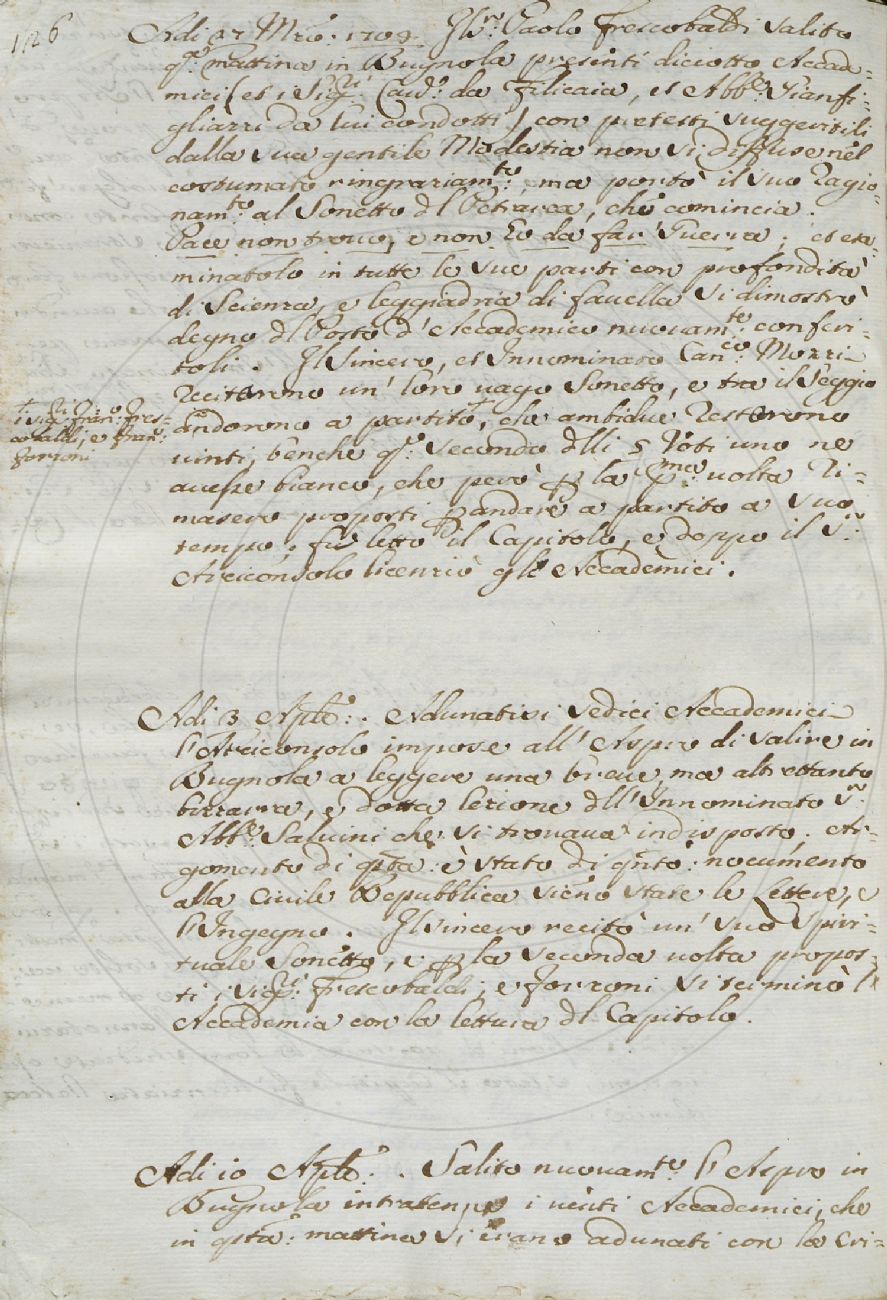 126
Adi 27 Mzo: 1703. Il Sr. Paolo Frescobaldi salito
qa. mattina in Bugnola presenti diciotto Accade-
mici (et i Sigri. Cavo. da Filicaia, et Abbe. Gianfi-
gliazzi da lui condotti) con pretesti suggeritili
dalla sua gentile Modestia non si diffuse nel
costumato ringraziamto. ma portò il suo Ragio-
namto. al Sonetto dl Petrarca, che comincia.
Pace non trovo, e non ho da far Guerra; et esa-
minatolo in tutte le sue parti con profondità
di Scienza, e leggiadria di favella si dimostrò
degno dl Posto d'Accademico nuovamte. conferi-
toli. Il Sincero, et Innominato Canco. Mozzi
Recitorono un' loro vago Sonetto, e tra il Seggio
ti Sigri. Frano. Fres-
cobaldi, e Frano.
Forzoni
andorono a partito, che ambidue Restorono
vinti, benche qo. secondo dlli 5 Voti uno ne
avesse bianco, che però p la pma. volta Ri-
masero proposti p andare a partito a suo
tempo; fù letto il Capitolo, e doppo il Sr.
Arciconsolo licenziò gle Accademici.
Adi 3 Aple:. Adunatisi sedici Accademici
l'Arciconsolo impose all' Aspro di salire in
Bugnola a leggere una breve, ma altrettanto
bizzarra, e dotta lezione dll' Innominato Sr.
Abbe. Salvini che si trovava indisposto; Ar-
gomento di qsta: è stato di qnto: nocumento
alla Civile Republica sieno state le lettere, e
l'Ingegno. Il Sincero recitò un' suo Spiri-
tuale Sonetto, e p la seconda volta propos-
ti i Sigri. Frescobaldi, e Forzoni si terminò l'
Accademia con la lettura dl Capitolo.
Adi 10 Aple:. Salito nuovamte. l'Aspro in
Bugnola intrattenne i venti Accademici, che
in qsta: mattina si erano adunati con la Cri-